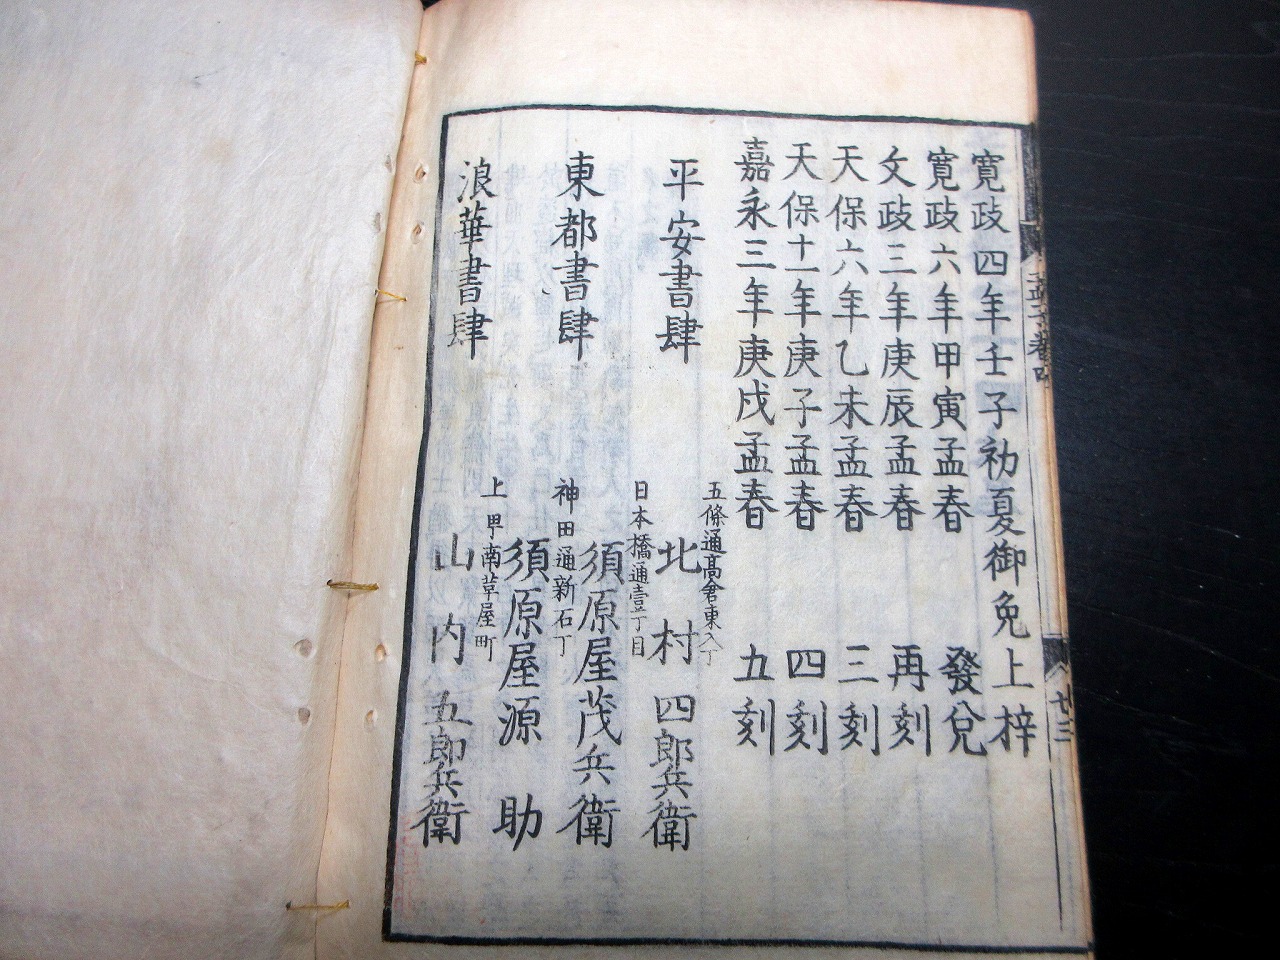 寛政四年壬子初夏御免上梓
寛政六年甲寅孟春 發兌
文政三年庚辰孟春 再刻
天保六年乙未孟春 三刻
天保十一年庚子孟春 四刻
嘉永三年庚戌孟春 五刻
五條通高倉東入丁
平安書肆 北村四郎兵衛
日本橋通壹丁目
東都書肆 須原屋茂兵衛
神田通新石丁
須原屋源助
上甲南草屋町
浪華書肆 山内五郎兵衛
孟子卷四
廿三